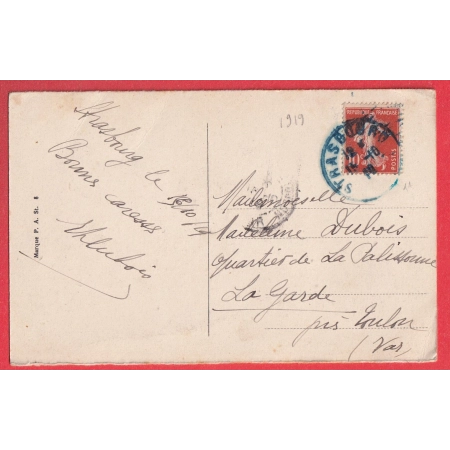 Strasbourg le
15/10/19
Bonnes caresses
Marque P. A. St. 8
1919
REPUBLIQUE FRANÇAISE
10
POSTES
STRASBOURG
Mademoiselle
Madeleine Dubois
Quartier de La Palissonne
La Garde
près Toulon
(Var)